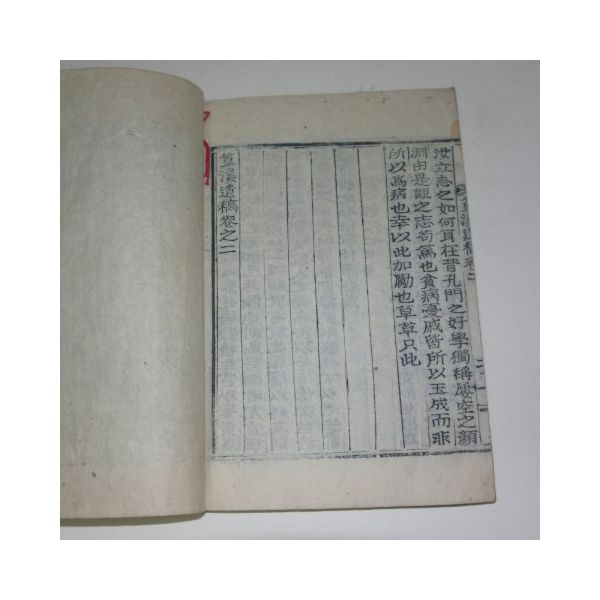 汝立志之如何耳在昔孔門之好學獨稱屢空之顔
淵由是觀之志苟篤也貧病憂戚皆所以玉成而非
所以爲病也幸以此加勵也草草只此
溪遺稿卷之二